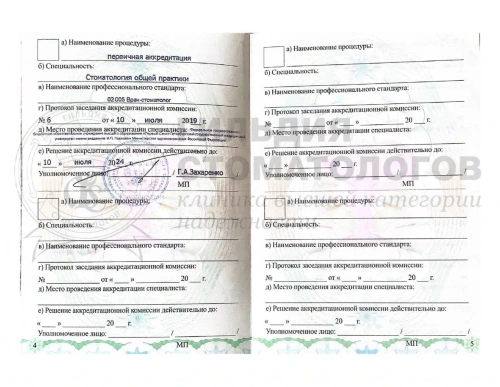 а) Наименование процедуры:
первичная аккредитация
б) Специальность:
Стоматология общей практики
в) Наименование профессионального стандарта:
02.005 Врач-стоматолог
г) Протокол заседания аккредитационной комиссии:
№ 6 от « 10 » июля 2019 г.
д) Место проведения аккредитации специалиста:
е) Решение аккредитационной комиссии действительно до:
« 10 » июля 2024 г.
Уполномоченное лицо: / Г.А.Захаренко
МП
а) Наименование процедуры:
б) Специальность:
в) Наименование профессионального стандарта:
г) Протокол заседания аккредитационной комиссии:
№ от « » 20 г.
д) Место проведения аккредитации специалиста:
е) Решение аккредитационной комиссии действительно до:
« » 20 г.
Уполномоченное лицо: / /
4 МП
а) Наименование процедуры:
б) Специальность:
в) Наименование профессионального стандарта:
г) Протокол заседания аккредитационной комиссии:
№ от « » 20 г.
д) Место проведения аккредитации специалиста:
е) Решение аккредитационной комиссии действительно до:
« » 20 г.
Уполномоченное лицо: / /
МП
а) Наименование процедуры:
б) Специальность:
в) Наименование профессионального стандарта:
г) Протокол заседания аккредитационной комиссии:
№ от « » 20 г.
д) Место проведения аккредитации специалиста:
е) Решение аккредитационной комиссии действительно до:
« » 20 г.
Уполномоченное лицо: / /
МП 5
ГИЛЬДИЯ
СТОМАТОЛОГОВ
клиника высшей категории
надежности